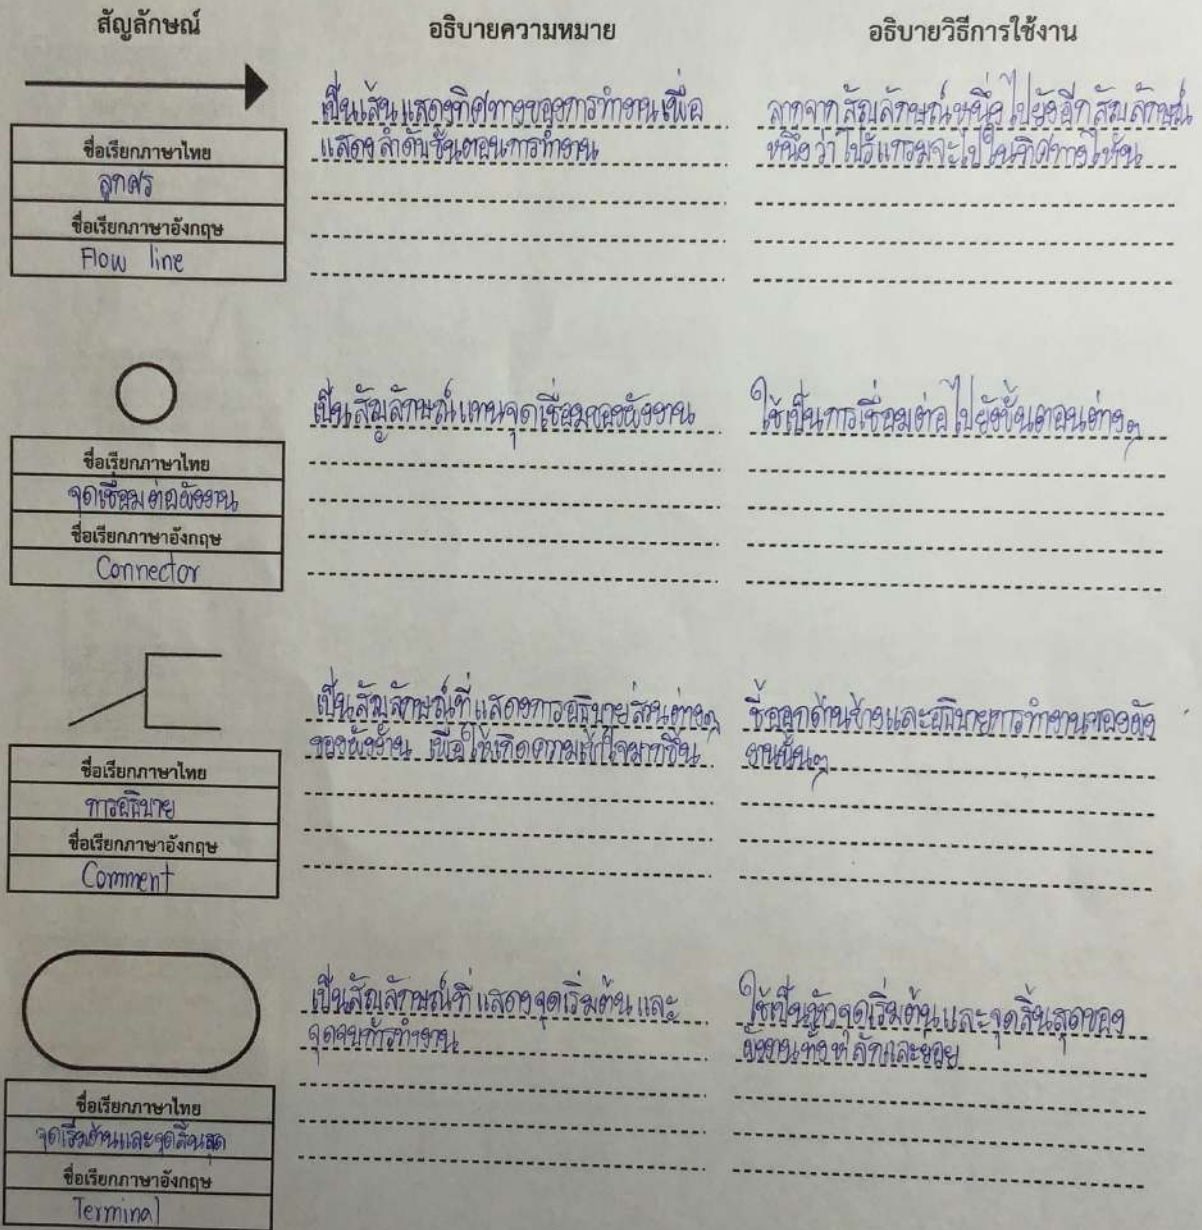 สัญลักษณ์
อธิบายความหมาย
อธิบายวิธีการใช้งาน
ชื่อเรียกภาษาไทย
ลูกศร
ชื่อเรียกภาษาอังกฤษ
Flow line
เป็นเส้นแสดงทิศทางของการทำงานเพื่อ
แสดงลำดับขั้นตอนการทำงาน
ลากจากสัญลักษณ์หนึ่งไปยังอีกสัญลักษณ์
หนึ่งว่าโปรแกรมจะไปในทิศทางไหน
ชื่อเรียกภาษาไทย
จุดเชื่อมต่อผังงาน
ชื่อเรียกภาษาอังกฤษ
Connector
เป็นสัญลักษณ์แทนจุดเชื่อมของผังงาน
ใช้เป็นการเชื่อมต่อไปยังขั้นตอนต่างๆ
ชื่อเรียกภาษาไทย
การอธิบาย
ชื่อเรียกภาษาอังกฤษ
Comment
เป็นสัญลักษณ์ที่แสดงการอธิบายส่วนต่างๆ
ของผังงาน เพื่อให้เกิดความเข้าใจมากขึ้น
ชี้ออกด้านข้างและอธิบายการทำงานของผัง
งานนั้นๆ
ชื่อเรียกภาษาไทย
จุดเริ่มต้นและจุดสิ้นสุด
ชื่อเรียกภาษาอังกฤษ
Terminal
เป็นสัญลักษณ์ที่แสดงจุดเริ่มต้นและ
จุดจบการทำงาน
ใช้เป็นตัวจุดเริ่มต้นและจุดสิ้นสุดของ
ผังงานทั้งหลักและย่อย